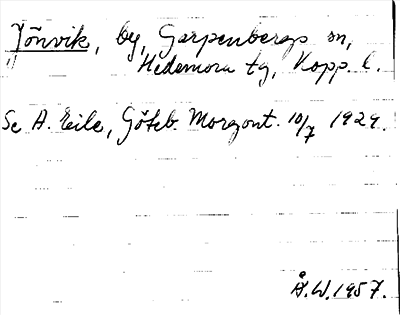 Jönvik, by, Garpenbergs sn,
Hedemora tg, Kopp. l.
Se A. Eile, Göteb. Morgont. 10/7 1929.
Å.W.1957.